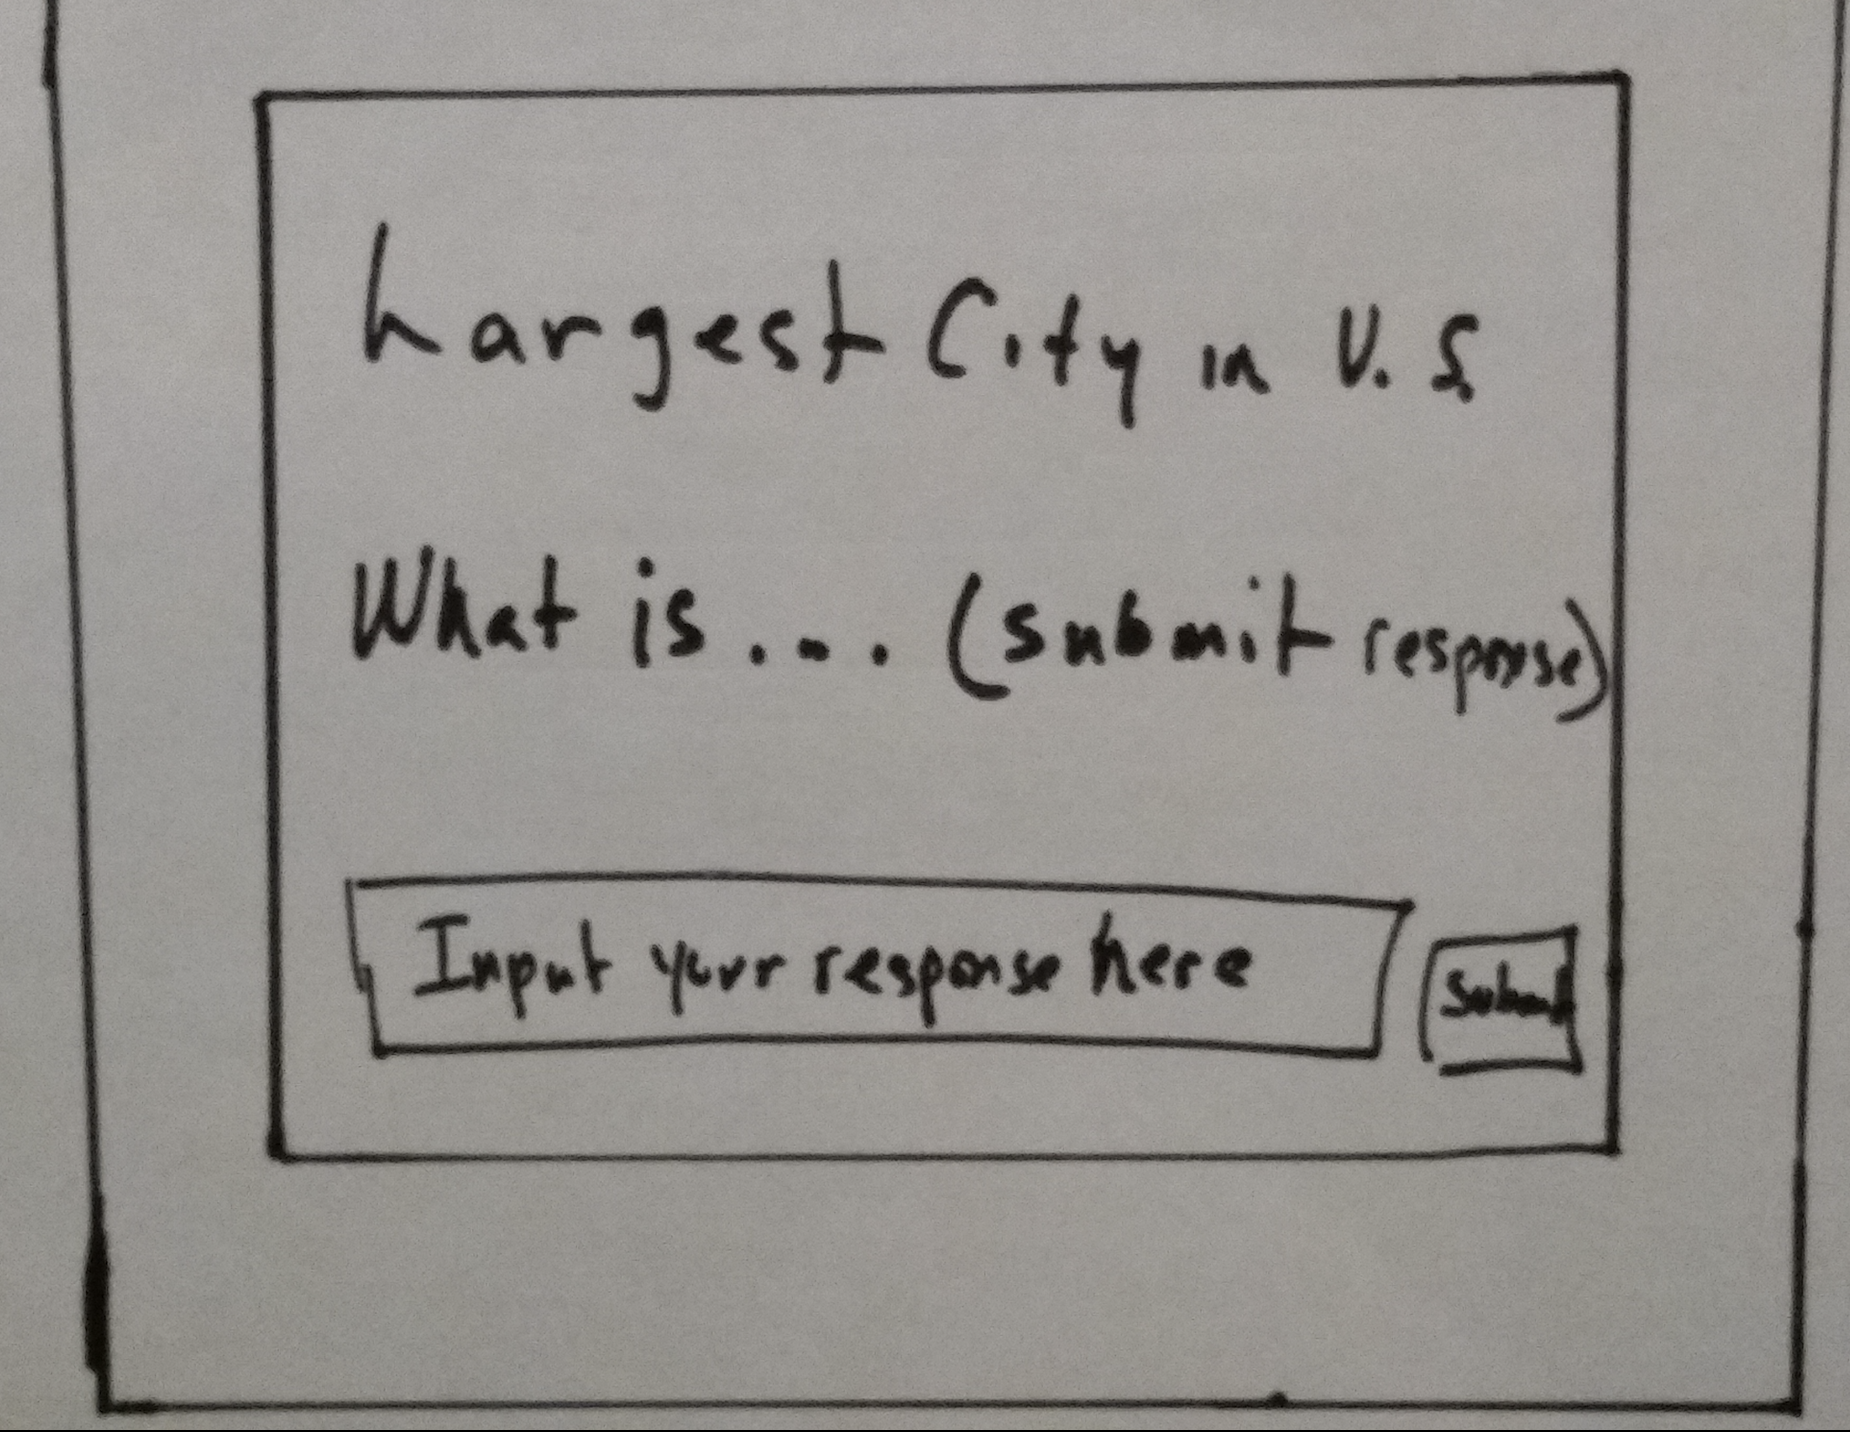 Largest City in U.S.
What is... (submit response)
Input your response here
Submit